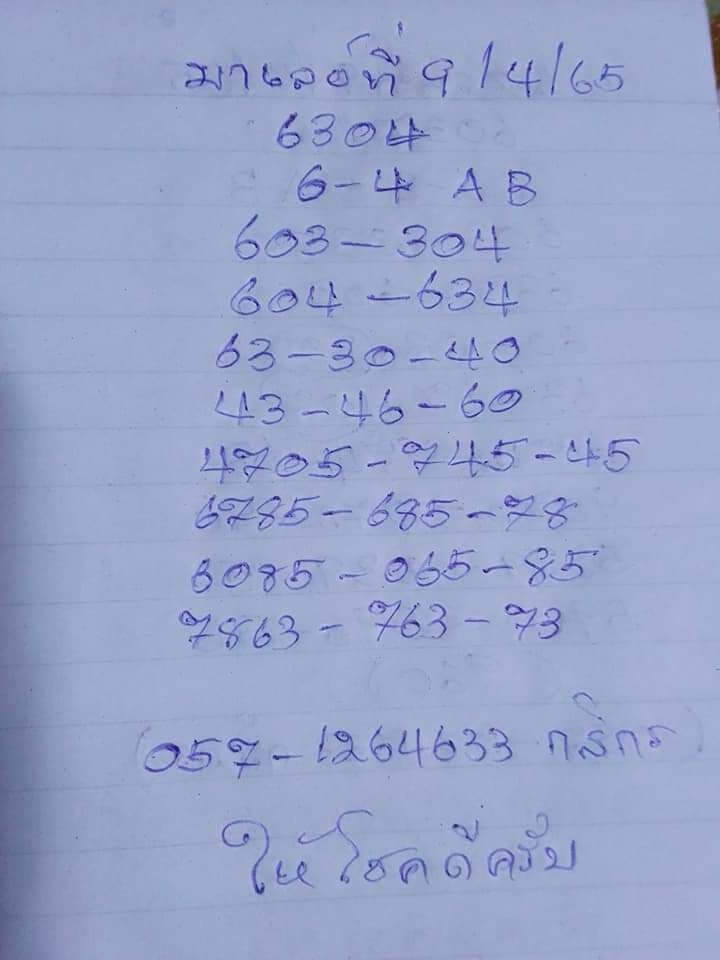 มาเลย์ที่ 9/4/65
6304
6-4 A B
603-304
604-634
63-30-40
43-46-60
4705-745-45
6785-685-78
6085-065-85
7863-763-73
(057-1264633 กสิกร)
ให้โชคดีครับ